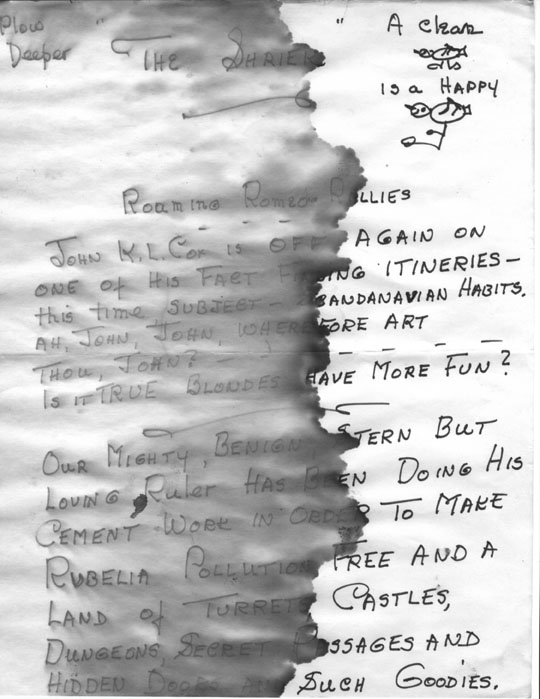 Plow
Deeper
" THE SHRIEK "
A Clean
IS a HAPPY
Roaming Romeo Rallies
JOHN K.L. COX IS OFF AGAIN ON
ONE of His FACT FINDING ITINERIES –
this time SUBJECT – SCANDANAVIAN HABITS.
AH, JOHN, JOHN, WHEREFORE ART
THOU, JOHN?
IS IT TRUE BLONDES HAVE MORE FUN?
OUR MIGHTY, BENIGN, STERN BUT
LOVING RULER HAS BEEN DOING HIS
CEMENT WORK IN ORDER TO MAKE
RUBELIA POLLUTION FREE AND A
LAND of TURRETS, CASTLES,
DUNGEONS, SECRET PASSAGES AND
HIDDEN DOORS AND SUCH GOODIES.